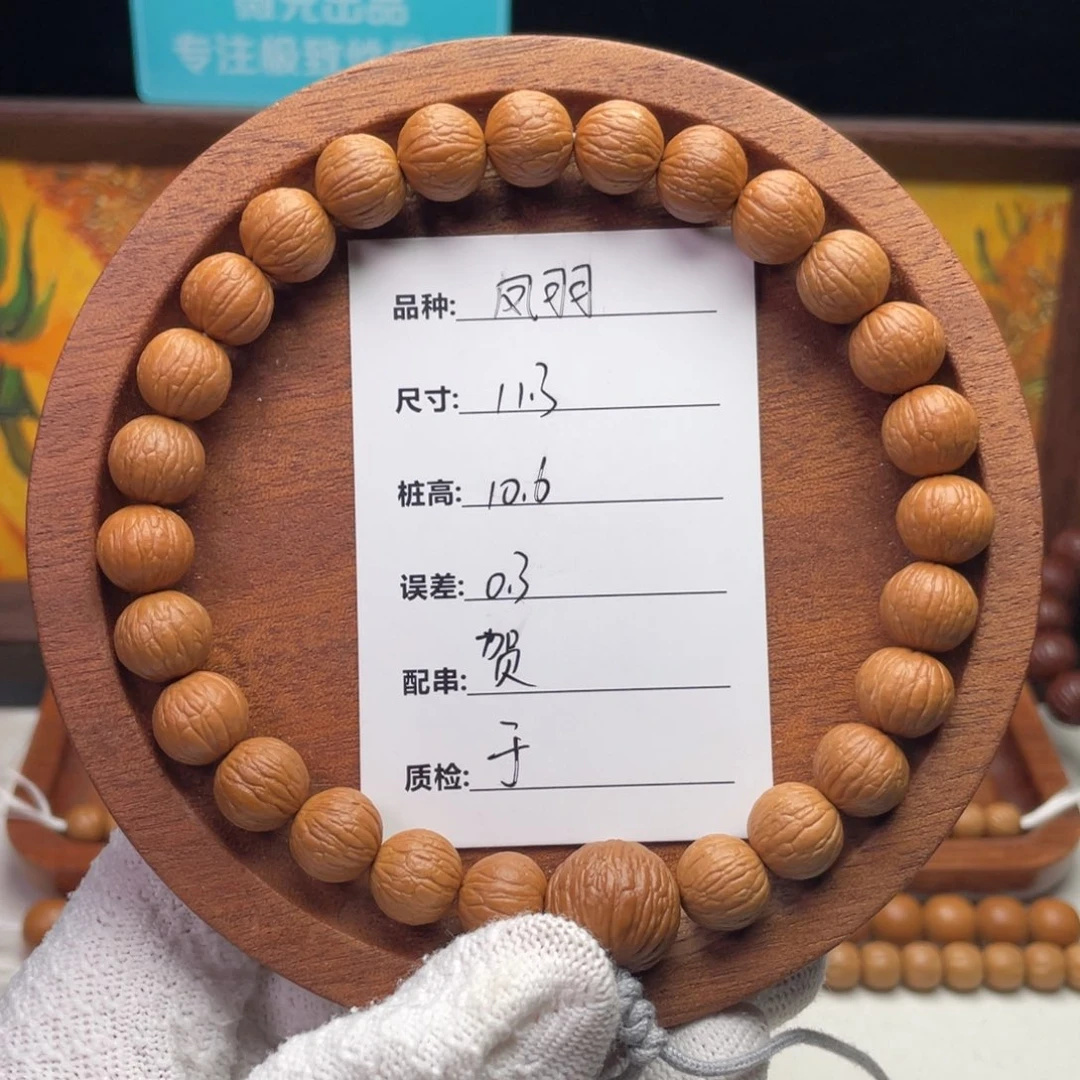 微光出品
专注极致
品种: 凤羽
尺寸: 11.3
桩高: 10.6
误差: 0.3
配串: 贺
质检: 于